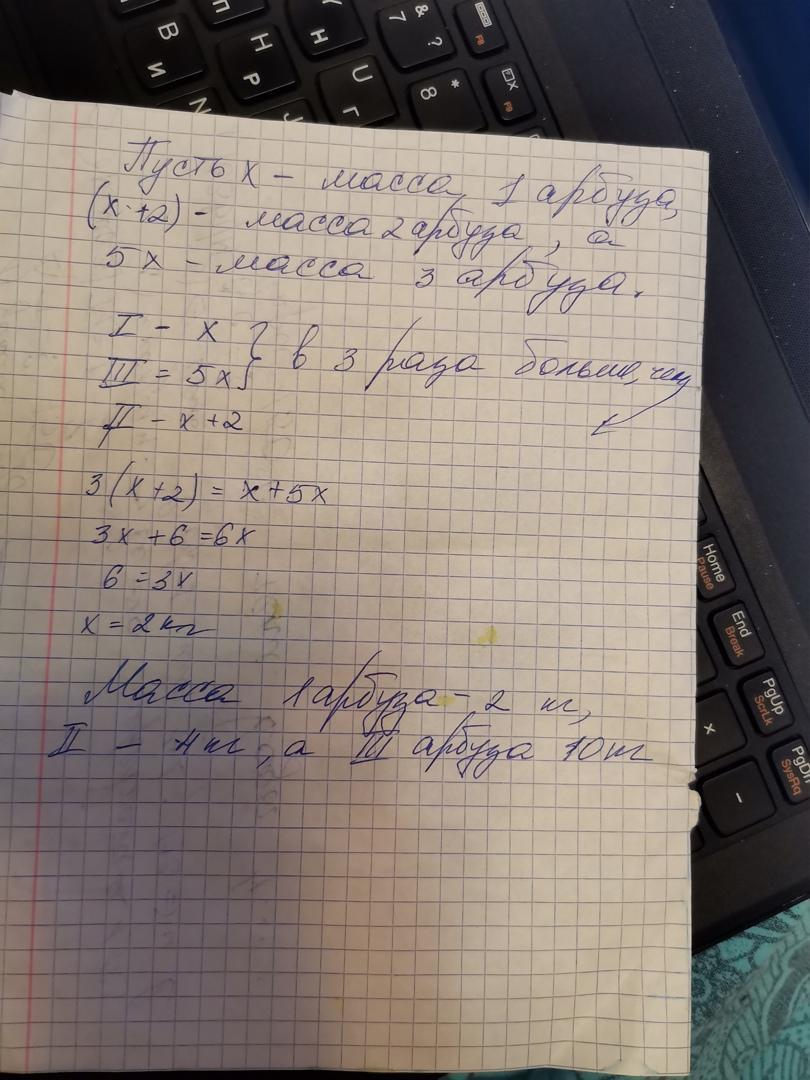 & 7 ?
* 8
F8
F9
В
И
Н
Р
Н
U
Г
N
J
Пусть х – масса 1 арбуза,
(х+2) - масса 2 арбуза, а
5х – масса 3 арбуза.
I – х
III = 5х } в 3 раза больше, чем
II – х+2
3(х+2) = х+5х
3х+6=6х
6=3х
х=2кг
Масса 1 арбуза – 2 кг,
II – 4кг, а III арбуза 10кг
Home
Pause
End
Break
PgUp
ScrLk
PgDn
SysRq